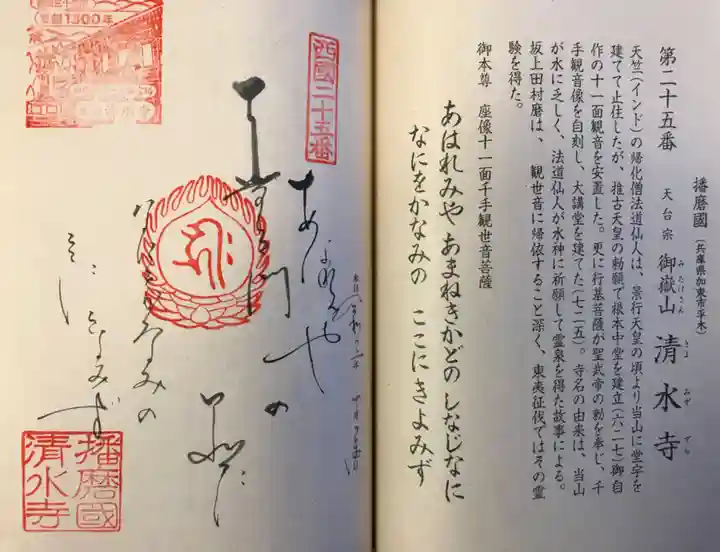 第二十五番
播磨國(兵庫県加東市平木)
天台宗 御嶽山 清水寺
みたけさん きよみずでら
天竺(インド)の帰化僧法道仙人は、景行天皇の頃より当山に堂宇を
建てて止住したが、推古天皇の勅願で根本中堂を建立(六二七)御自
作の十一面観音を安置した。更に行基菩薩が聖武帝の勅を奉じ、千
手観音像を自刻し、大講堂を建てた(七二五)。寺名の由来は、当山
が水に乏しく、法道仙人が水神に祈願して霊泉を得た故事による。
坂上田村麿は、観世音に帰依すること深く、東夷征伐ではその霊
験を得た。
御本尊 座像十一面千手観世音菩薩
あはれみや あまねきかどの しなじなに
なにをかなみの ここにきよみず
西國二十五番
あはれみや
門の
なみの
きよみず
播磨國
清水寺
1300年